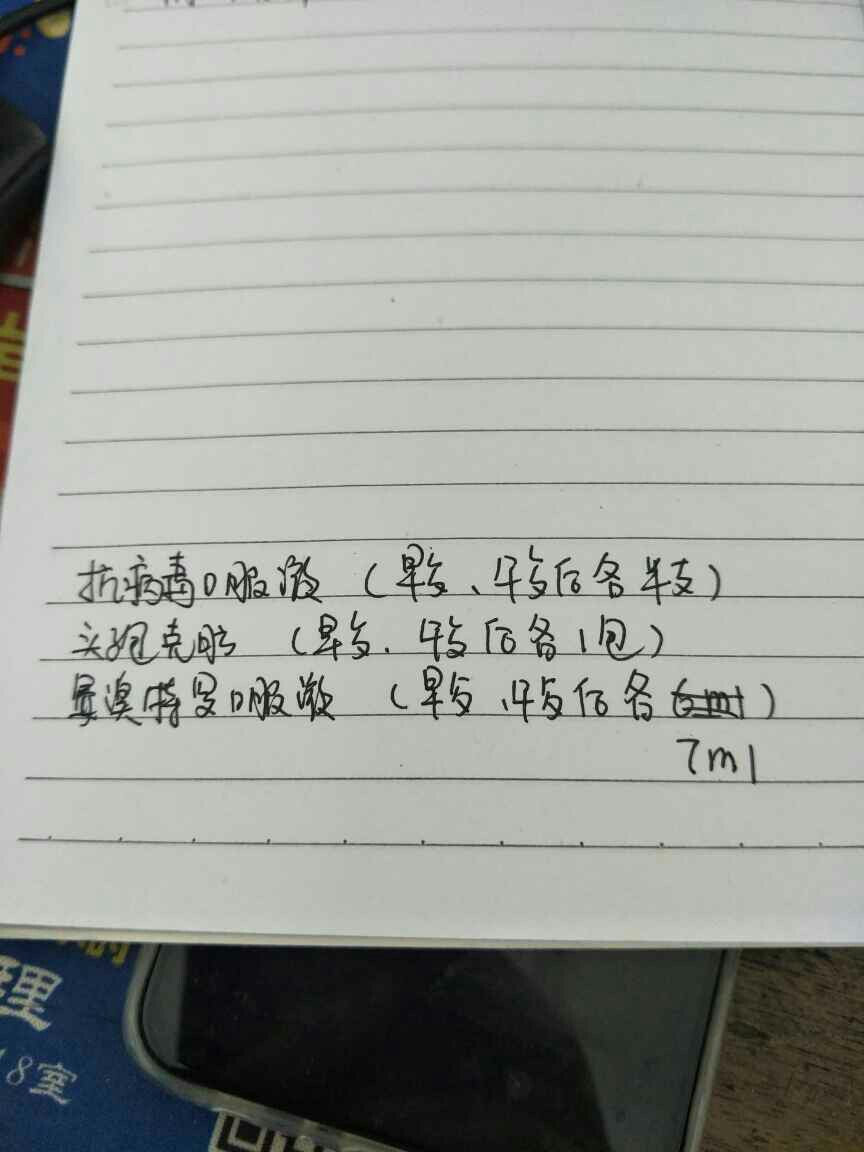 抗病毒口服液（早餐、午餐后各半支）
头孢克肟（早餐、午餐后各1包）
氨溴特罗口服液（早餐、午餐后各）
7ml
理
18室